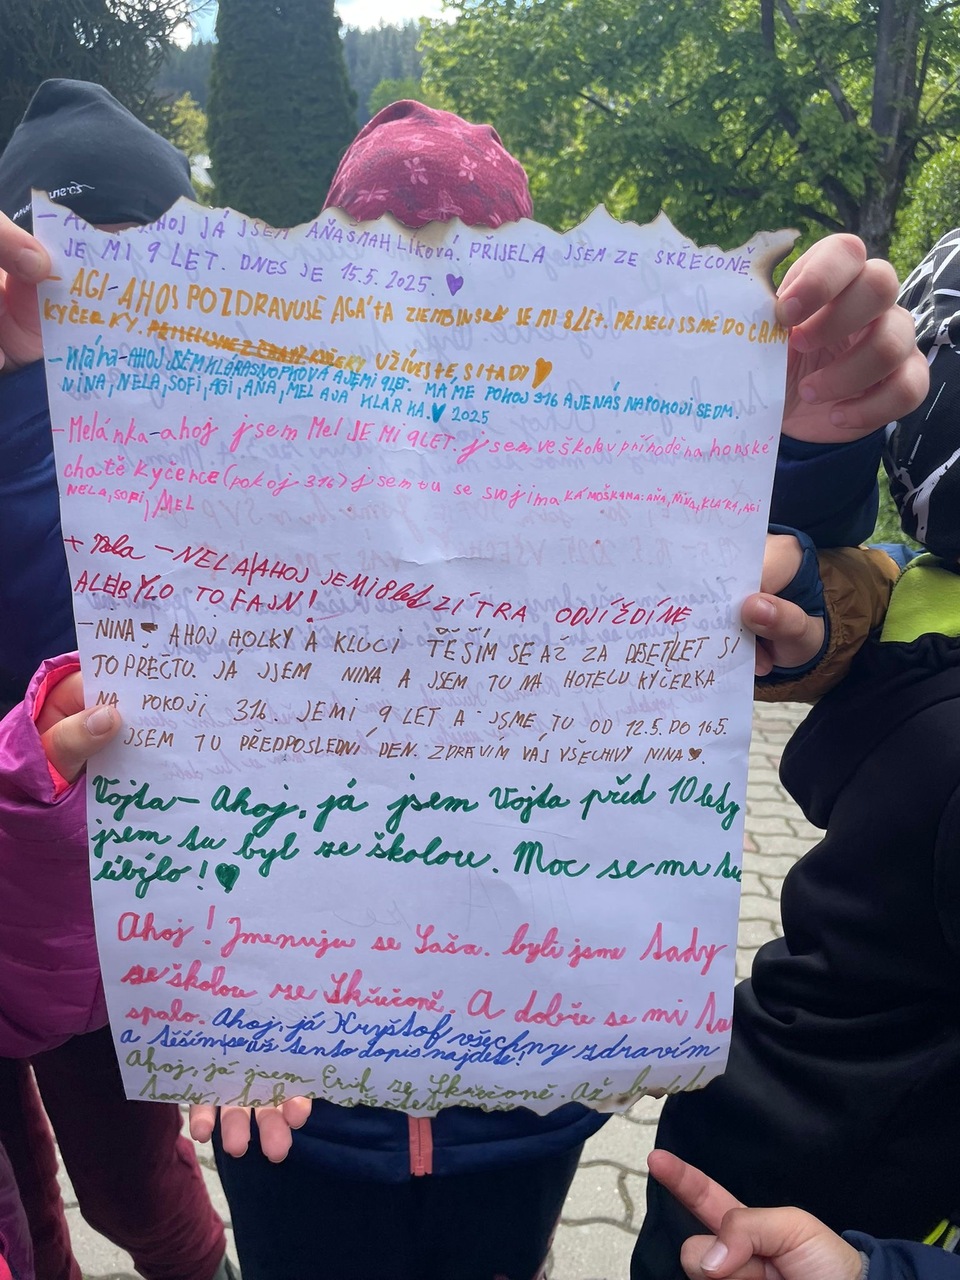 AHOJ JÁ JSEM AŇA SMAHLÍKOVÁ. PŘIJELA JSEM ZE SKŘEČONĚ.
JE MI 9 LET. DNES JE 15.5. 2025.
- AGI-AHOJ POZDRAVUJE AGÁTA ZIEMBINSKÁ JE MI 8 LET. PŘIJELI JSME DO CHATY
KYČERKY. UŽÍVEJTE, SI TADY
- Klára-AHOJ JSEM KLÁRA SNOPKOVÁ A JE MI 9 LET. MÁME POKOJ 316 A JE NÁS NA POKOJI SEDM.
NINA, NELA, SOFI, AGI, AŇA, MEL A JÁ KLÁRKA. 2025
-Melánka-ahoj jsem Mel JE MI 9 LET. jsem ve školu přírodě na horské
chatě Kyčerce (pokoj 316) jsem tu se svojima KAMOŠKAMA: AŇA, NINA, KLÁRKA, AGI
NELA, SOFI, MEL
+ Nela - NELA AHOJ JE MI 8 let ZÍTRA ODJÍŽDÍME
ALE BYLO TO FAJN!
-NINA AHOJ HOLKY A KLUCI TĚŠÍM SE AŽ ZA DESET LET SI
TO PŘEČTU. JÁ JSEM NINA A JSEM TU NA HOTELU KYČERKA
NA POKOJI 316. JE MI 9 LET A JSME TU OD 12.5. DO 16.5.
JSEM TU PŘEDPOSLEDNÍ DEN. ZDRAVÍM VÁS VŠECHNY NINA.
Vojta- Ahoj, já jsem Vojta před 10 lety
jsem tu byl ze školou. Moc se mi tu
líbilo!
Ahoj! Jmenuju se Saša. byli jsme tady
se školou ze Skřečoně. A dobře se mi tu
spalo. Ahoj, já Kryštof všechny zdravím
a těším se až tento dopis najdete!
Ahoj, já jsem Erik ze Skřečoně. Až budete
tady, tak si